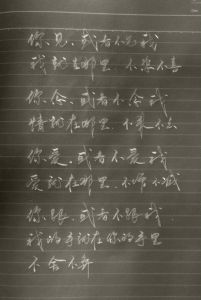 你见，或者不见我
我就在那里，不悲不喜
你念，或者不念我
情就在那里，不来不去
你爱，或者不爱我
爱就在那里，不增不减
你跟，或者不跟我
我的手就在你的手里
不舍不弃